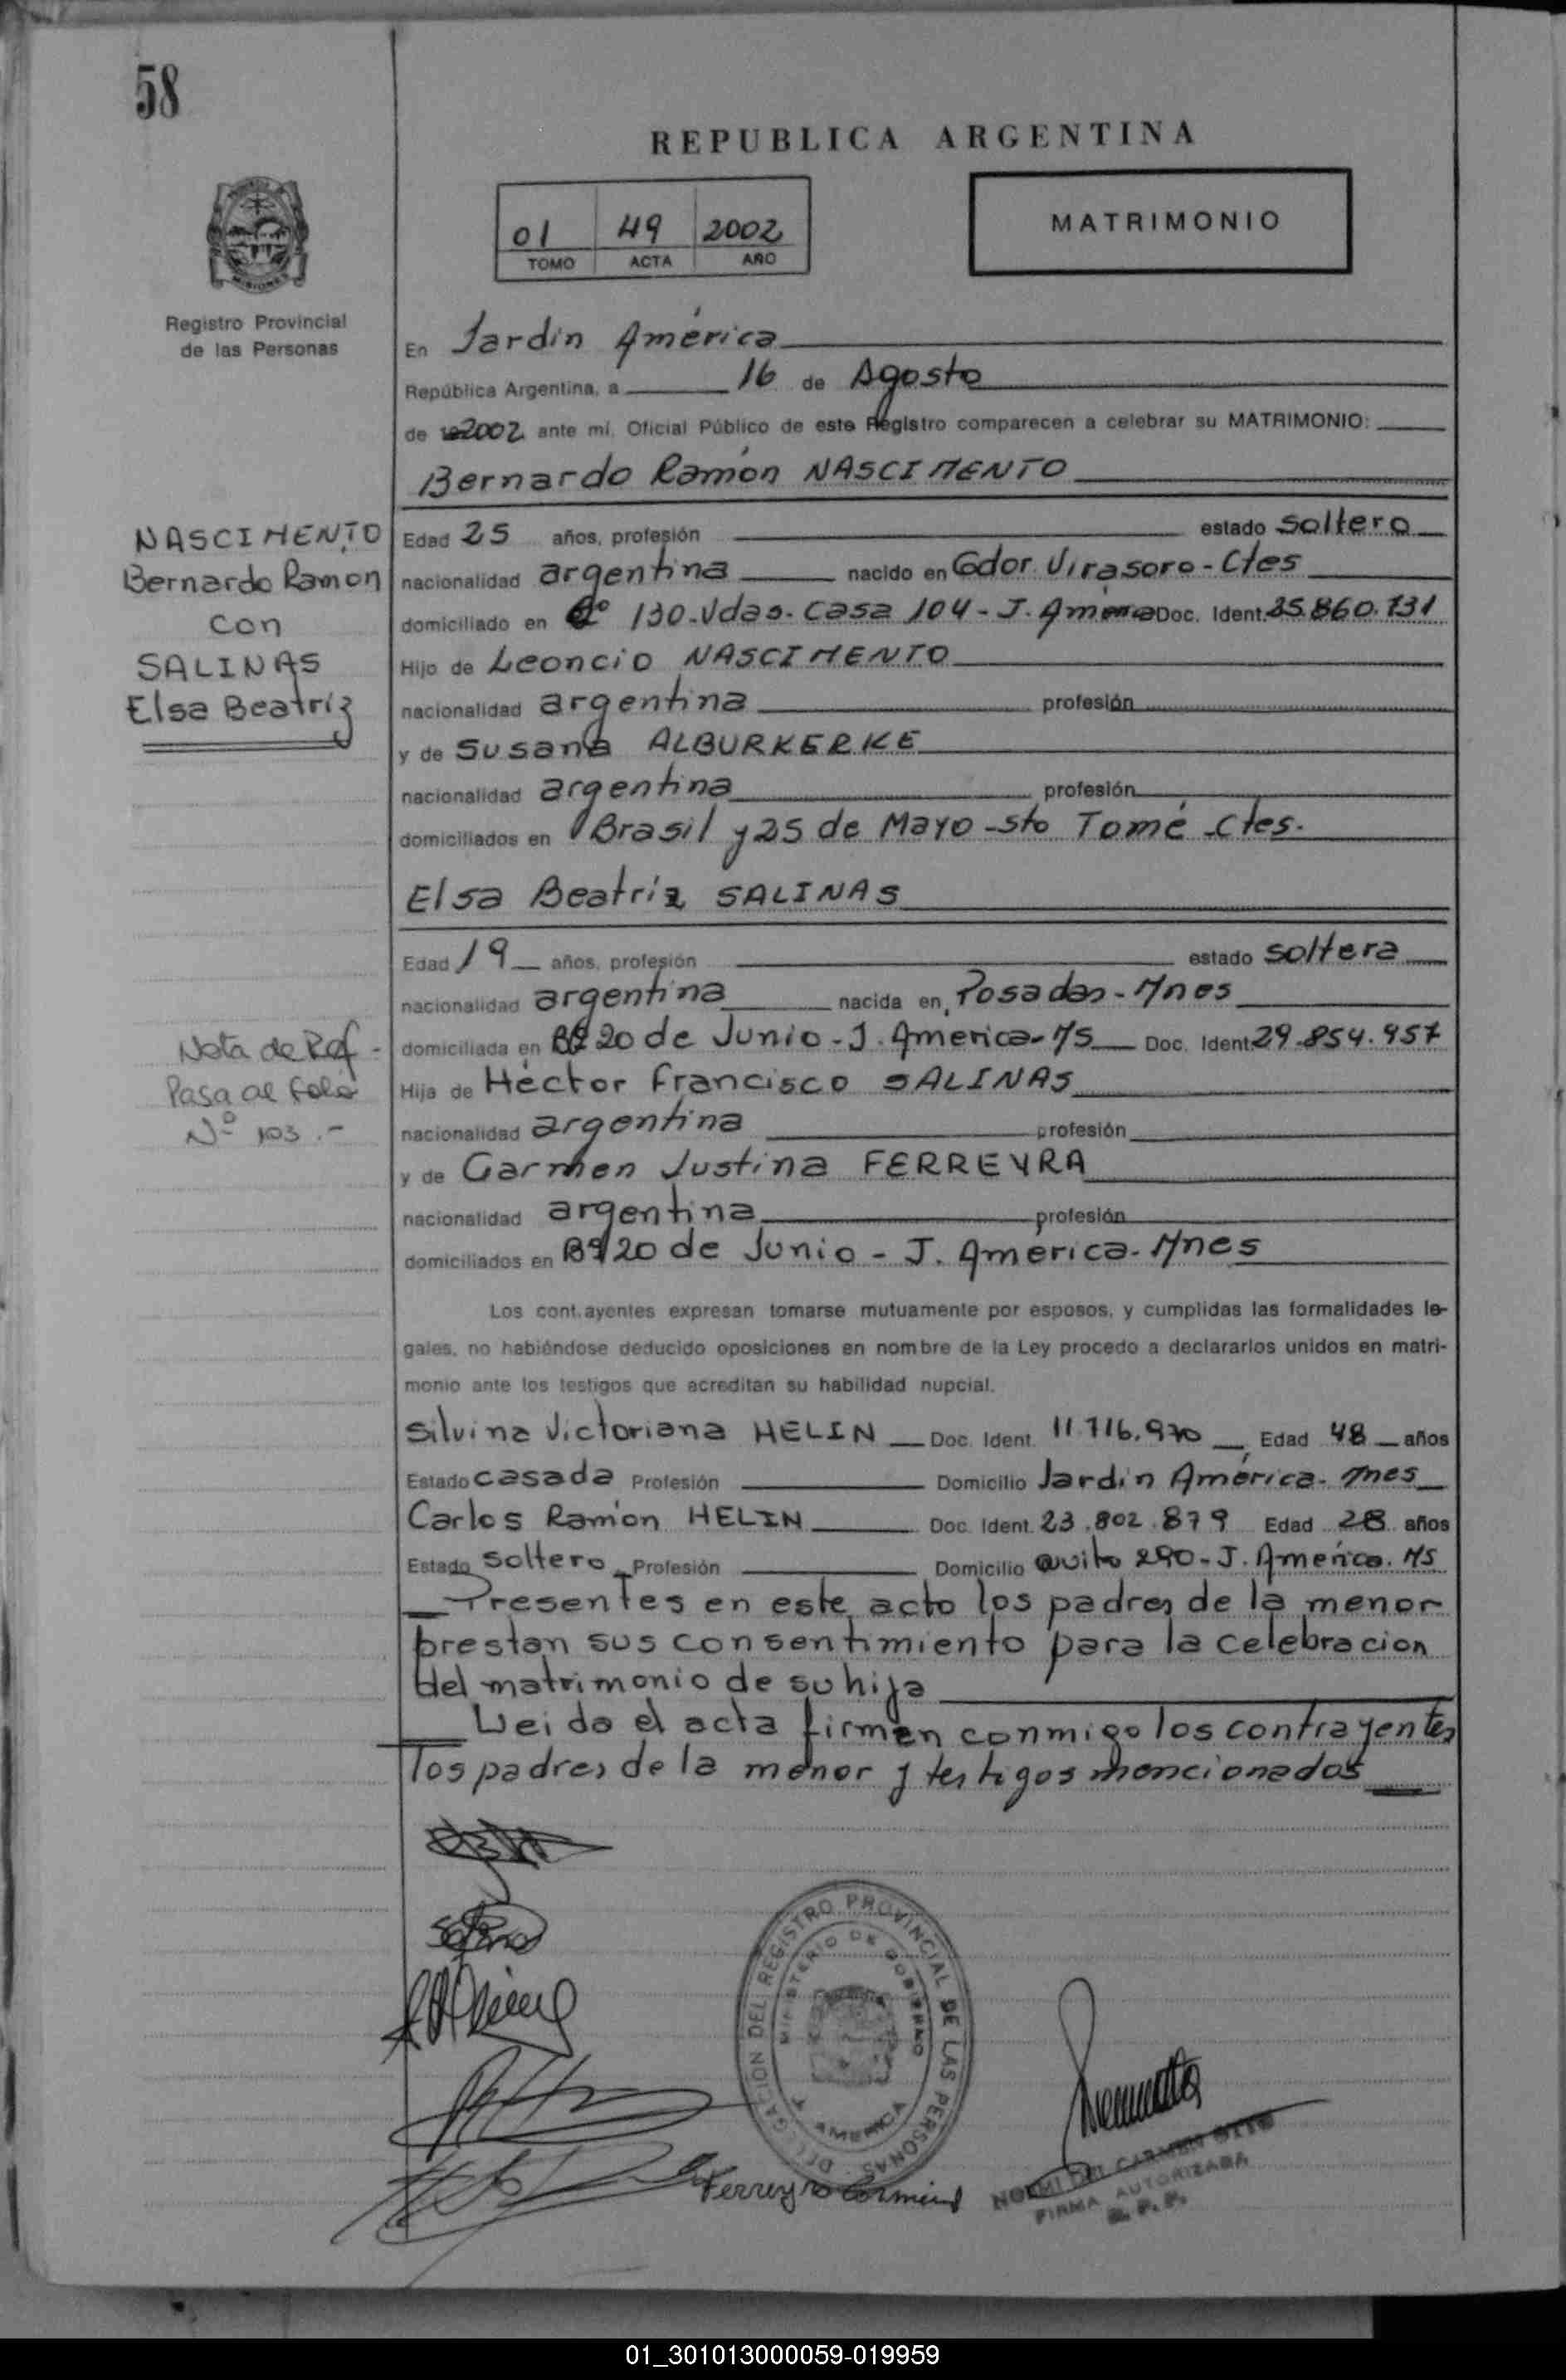 58
REPUBLICA ARGENTINA
01 49 2002
TOMO ACTA AÑO
MATRIMONIO
Registro Provincial
de las Personas
En Jardín América
República Argentina, a 16 de Agosto
de 2002 ante mí, Oficial Público de este Registro comparecen a celebrar su MATRIMONIO:
Bernardo Ramón NASCIMENTO
NASCIMENTO
Bernardo Ramon
con
SALINAS
Elsa Beatríz
Edad 25 años, profesión estado soltero
nacionalidad argentina nacido en Gdor. Virasoro - Ctes
domiciliado en 130 Vdas. Casa 104 - J. América Doc. Ident. 25.860.731
Hijo de Leoncio NASCIMENTO
nacionalidad argentina profesión
y de Susana ALBURKERKE
nacionalidad argentina profesión
domiciliados en Brasil y 25 de Mayo - Sto Tomé - Ctes.
Elsa Beatríz SALINAS
Edad 19 años, profesión estado soltera
nacionalidad argentina nacida en Posadas - Mnes
domiciliada en Bº 20 de Junio - J. America - MS Doc. Ident. 29.854.957
Hija de Héctor Francisco SALINAS
nacionalidad argentina profesión
y de Carmen Justina FERREYRA
nacionalidad argentina profesión
domiciliados en Bº 20 de Junio - J. America - Mnes
Nota de Ref -
Pasa al folio
Nº 103.-
Los contrayentes expresan tomarse mutuamente por esposos, y cumplidas las formalidades le-
gales, no habiéndose deducido oposiciones en nombre de la Ley procedo a declararlos unidos en matri-
monio ante los testigos que acreditan su habilidad nupcial.
Silvina Victoriana HELIN Doc. Ident. 11.716.970 Edad 48 años
Estado casada Profesión Domicilio Jardín América - Mnes
Carlos Ramón HELIN Doc. Ident. 23.802.879 Edad 28 años
Estado soltero Profesión Domicilio Quito 290 - J. América. MS
Presentes en este acto los padres de la menor
prestan sus consentimiento para la celebracion
del matrimonio de su hija
Leido el acta firman conmigo los contrayentes
los padres de la menor y testigos mencionados
DELEGACION DEL REGISTRO PROVINCIAL DE LAS PERSONAS
MINISTERIO DE GOBIERNO
J. AMERICA
Ferreyra Carmen
NOEMI DEL CARMEN
FIRMA AUTORIZADA
R. P. P.
01_301013000059-019959